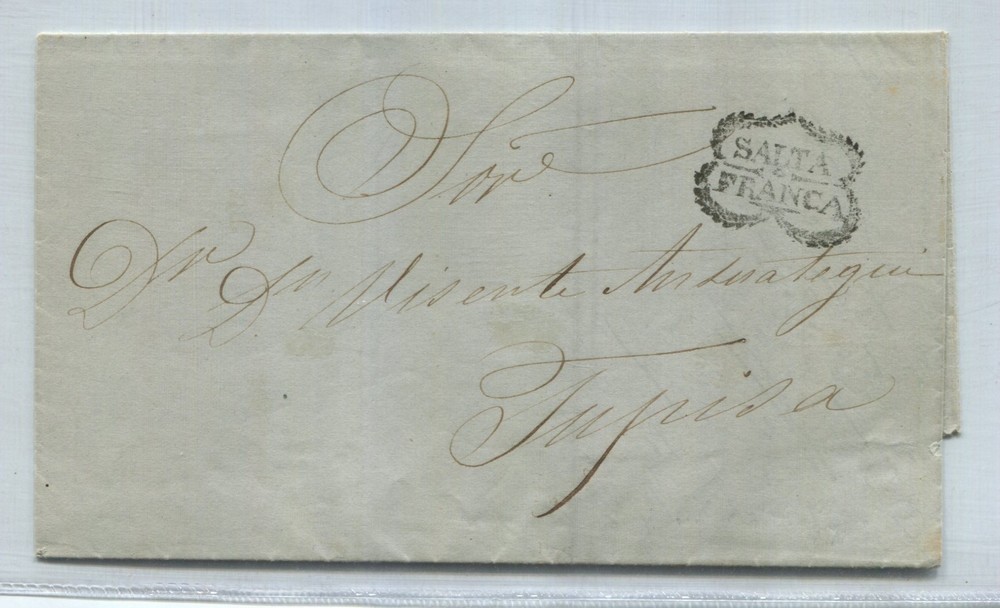 Sor.e
SALTA
FRANCA
Dr Dn Visente Anzuategui
Tupisa